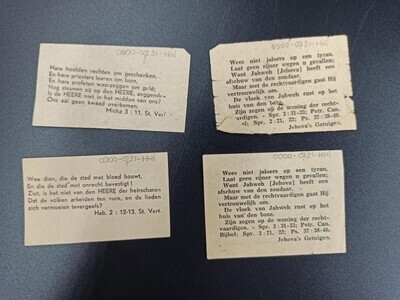 Hare hoofden rechten om geschenken,
En hare priesters leeren om loon,
En hare profeten waarzeggen om geld;
Nog steunen zij op den HEERE, zeggende:
Is de HEERE niet in het midden van ons?
Ons zal geen kwaad overkomen.
Micha 3 : 11, St. Vert.
Wees niet jaloers op een tyran,
Laat geen zijner wegen u gevallen;
Want Jahweh [Jehova] heeft een
afschuw van den zondaar,
Maar met de rechtvaardigen gaat Hij
vertrouwelijk om.
De vloek van Jahweh rust op het
huis van den booze,
Zijn zegen op de woning der recht-
vaardigen. - Spr. Petr. Can.
Spr. 2 : 21, 22; Ps. 37 : 38-40.
Jehova's Getuigen.
Wee dien, die de stad met bloed bouwt,
En die de stad met onrecht bevestigt!
Ziet, is het niet van den HEERE der heirscharen
Dat de volken arbeiden ten vure, en de lieden
zich vermoeien tevergeefs?
Hab. 2 : 12-13. St. Vert.
Wees niet jaloers op een tyran,
Laat geen zijner wegen u gevallen;
Want Jahweh [Jehova] heeft een
afschuw van den zondaar,
Maar met de rechtvaardigen gaat Hij
vertrouwelijk om.
De vloek van Jahweh rust op het
huis van den booze,
Zijn zegen op de woning der recht-
vaardigen. - Spr. Petr. Can.
Bijbel; Spr. 2 : 21, 22; Ps. 37 : 38-40.
Jehova's Getuigen.